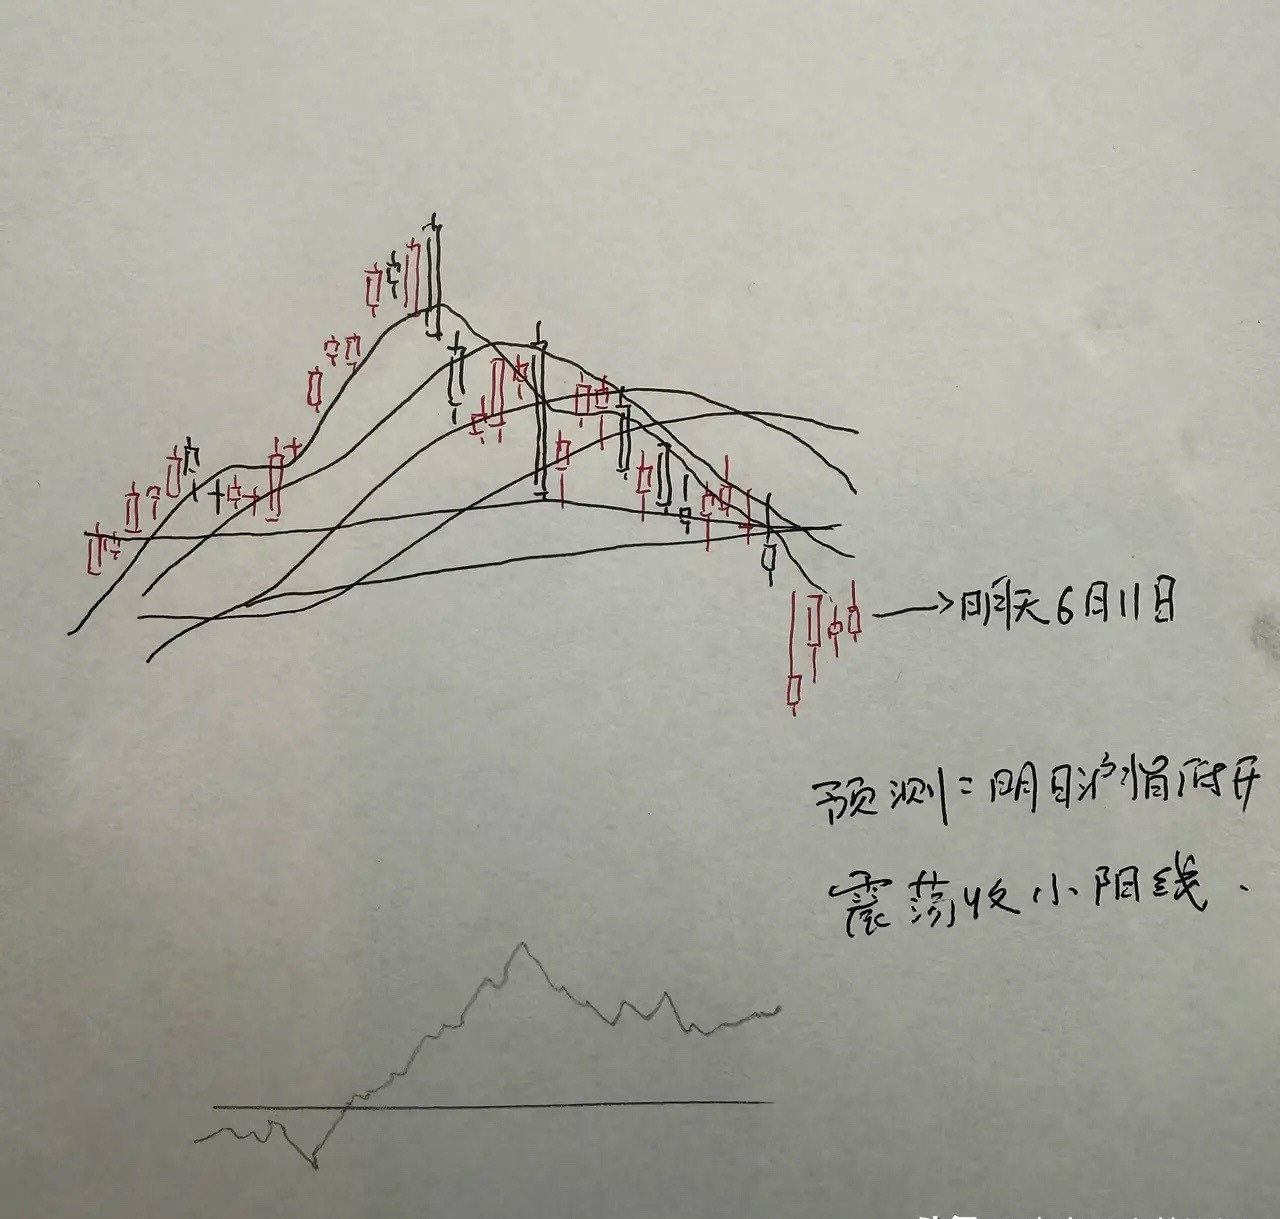 明天6月11日
预测:明日沪指附开
震荡收小阳线.